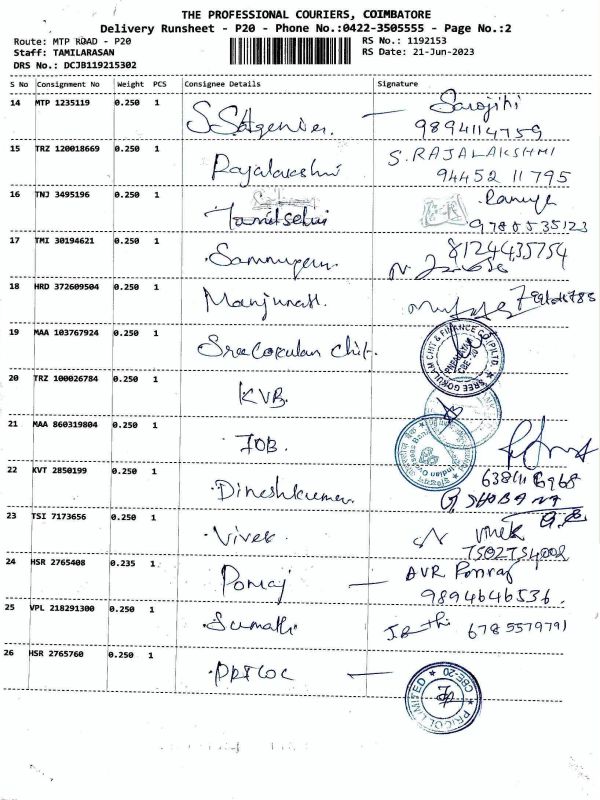 THE PROFESSIONAL COURIERS, COIMBATORE
Delivery Runsheet - P20 - Phone No.:0422-3505555 - Page No.:2
Route: MTP ROAD - P20 RS No.: 1192153
Staff: TAMILARASAN RS Date: 21-Jun-2023
DRS No.: DCJB119215302
S No Consignment No Weight PCS Consignee Details Signature
14 MTP 1235119 0.250 1 Sarojini
9894114759
15 TRZ 120018669 0.250 1 Rajalakshmi S. RAJALAKSHMI
94452 11 795
16 TNJ 3495196 0.250 1 Tamilselvi Ramya
9780535123
17 TMI 30194621 0.250 1 8124435754
18 HRD 372609504 0.250 1 Manjunath.
19 MAA 103767924 0.250 1 Sree Gokulan Chit. SREE GOKULAM CHIT & FINANCE CO.(P)LTD. CBE-20
20 TRZ 100026784 0.250 1 KVB.
21 MAA 860319804 0.250 1 IOB. Indian Overseas Bank
22 KVT 2850199 0.250 1 Dineshkumar G. SHOBANA
23 TSI 7173656 0.250 1 Vivek Vivek
24 HSR 2765408 0.235 1 Ponraj AVR Ponraj
9894646536.
25 VPL 218291300 0.250 1 Sumathi 6785579791
26 HSR 2765760 0.250 1 PRICOL PRICOL LIMITED CBE-20